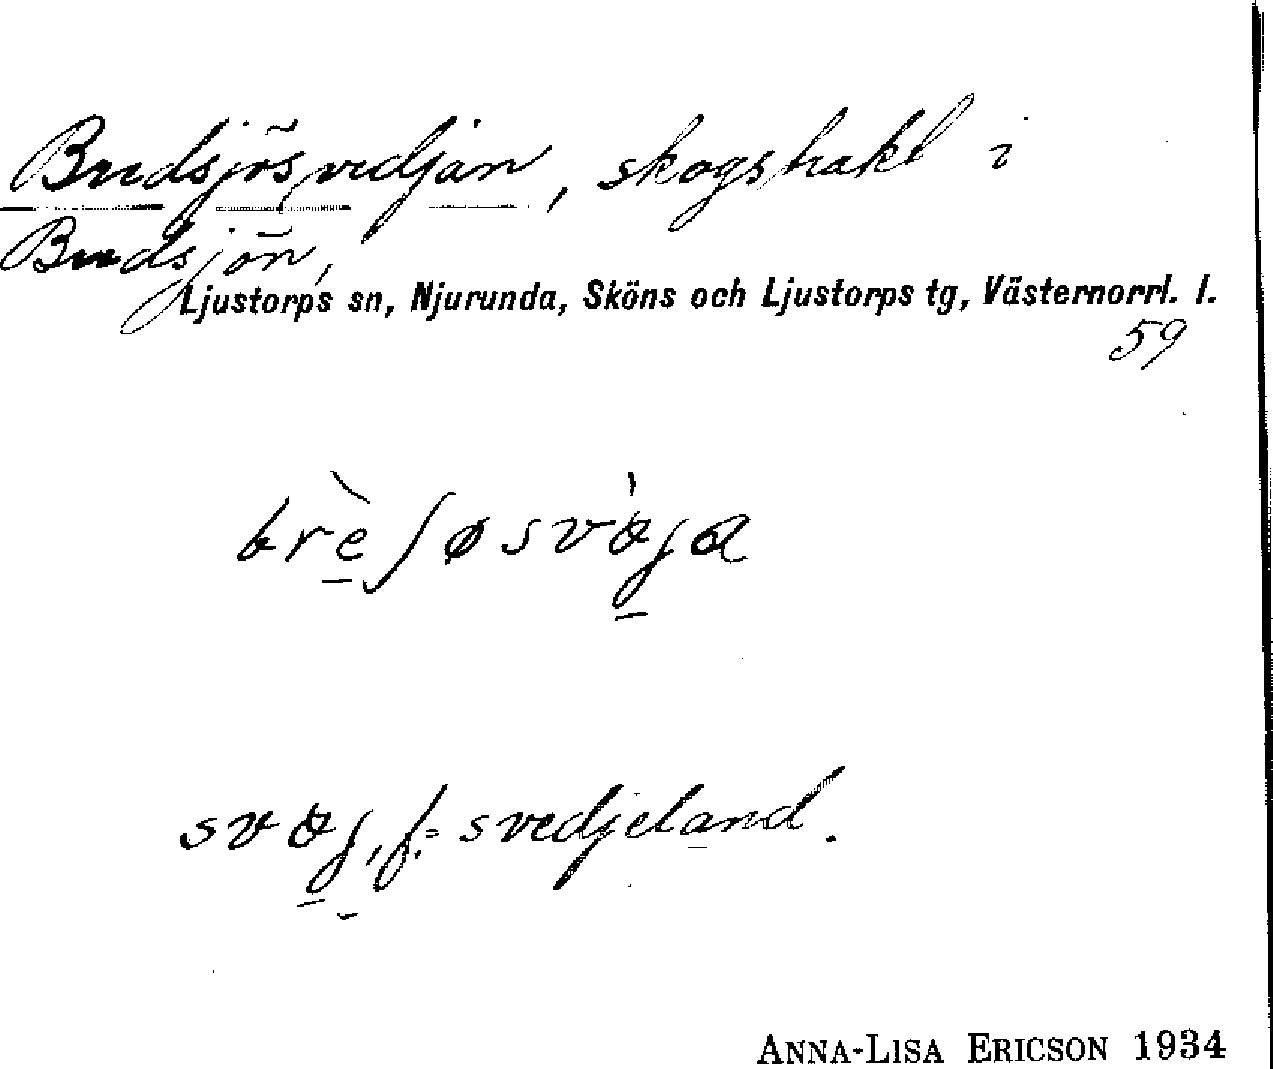 Bredsjösvedjan, skogstrakt i
Bredsjön,
Ljustorps sn, Njurunda, Sköns och Ljustorps tg, Västernorrl. l.
59
svedjeland.
ANNA-LISA ERICSON 1934